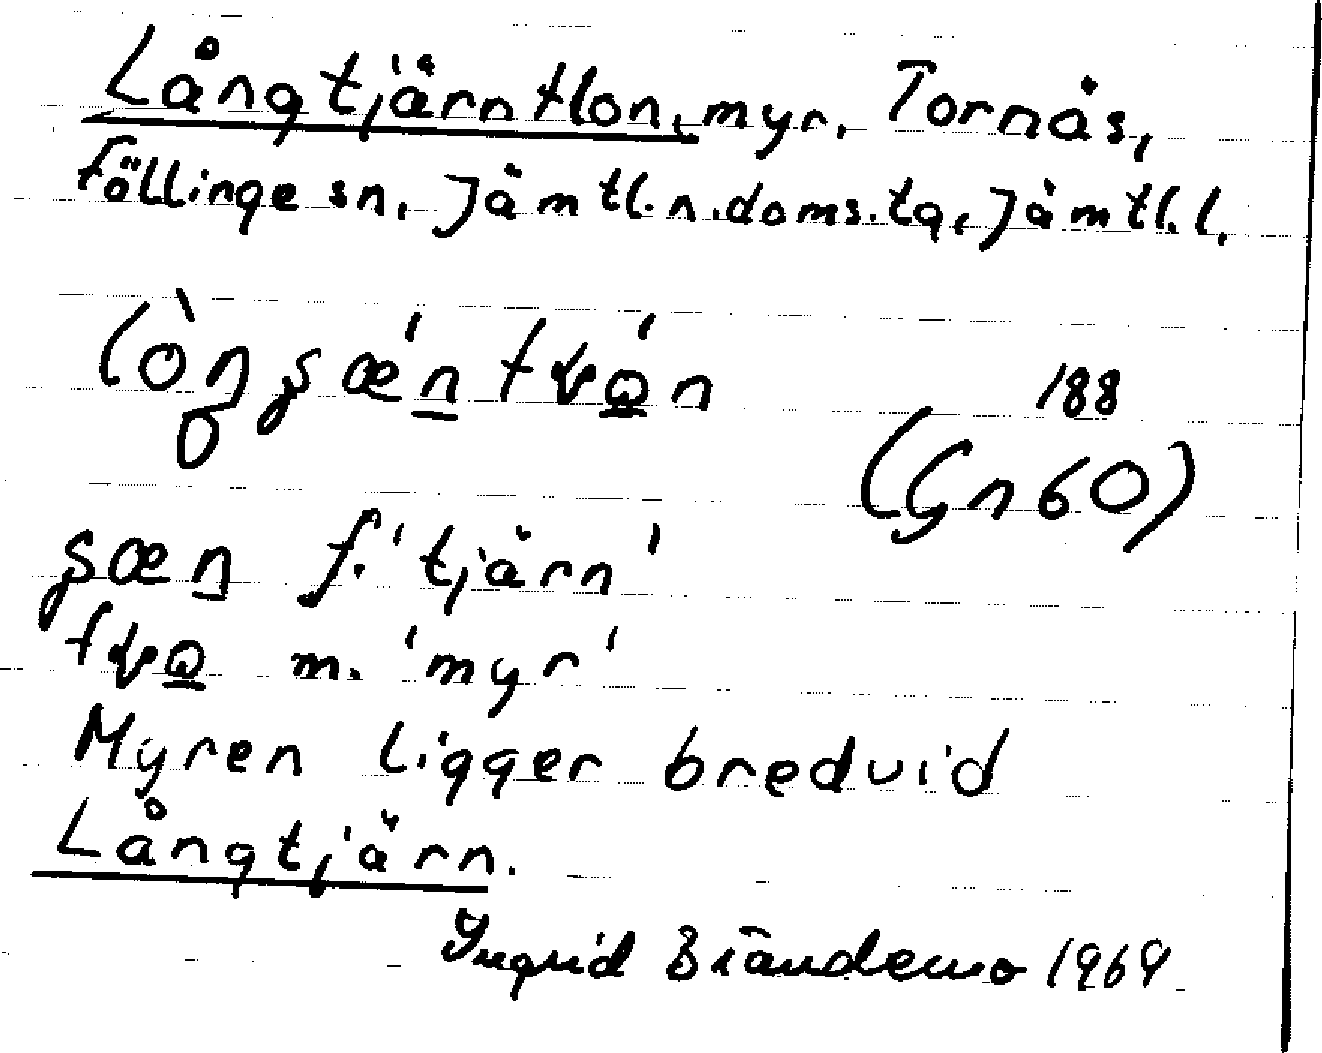 Långtjärnflon, myr, Tornäs,
Föllinge sn, Jämtl.n.doms.tg, Jämtl.l.
188
(Gn60)
f. 'tjärn'
m. 'myr'
Myren ligger bredvid
Långtjärn.
Ingrid Brändemo 1969